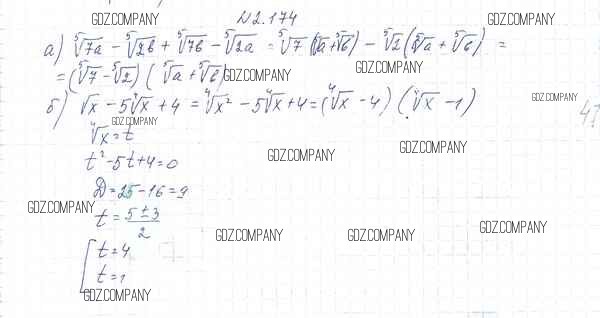 GDZ.COMPANY №2.174 GDZ.COMPANY
а) ⁵√7a − ⁵√2b + ⁵√7b − ⁵√2a = ⁵√7 (⁵√a + ⁵√b) − ⁵√2 (⁵√a + ⁵√b) =
GDZ.COMPANY
= (⁵√7 − ⁵√2) (⁵√a + ⁵√b) GDZ.COMPANY
б) √x − 5⁴√x + 4 = ⁴√x² − 5⁴√x + 4 = (⁴√x − 4) (⁴√x − 1) GDZ.COMPANY
GDZ.COMPANY
⁴√x = t
GDZ.COMPANY GDZ.COMPANY
t² − 5t + 4 = 0
D = 25 − 16 = 9
GDZ.COMPANY
t = (5 ± 3)/2
GDZ.COMPANY GDZ.COMPANY GDZ.COMPANY
[ t = 4
t = 1
GDZ.COMPANY